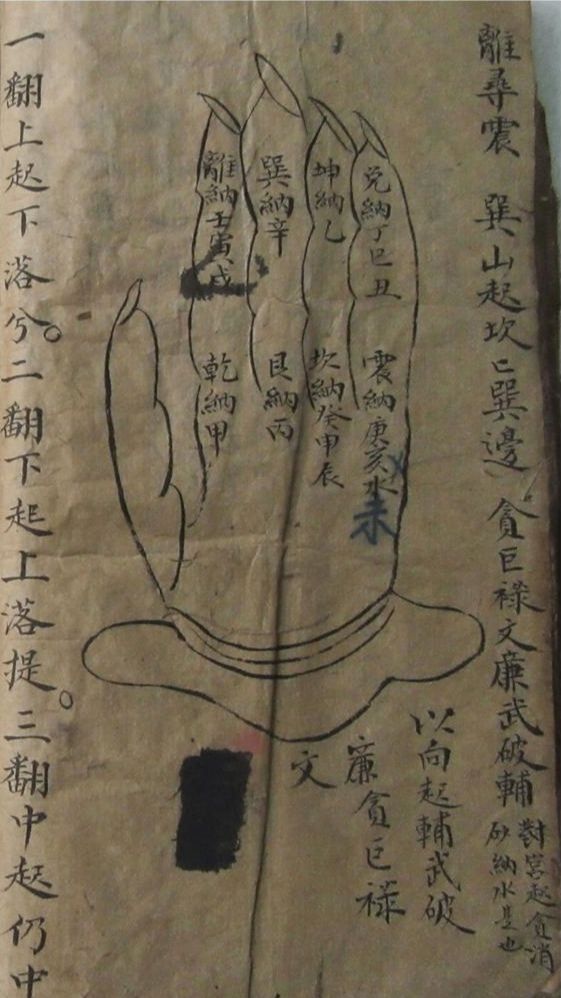 離尋震 巽山起坎巽邊 貪巨祿文廉武破輔
對宮起貪消
砂納水是也
兌納丁巳丑
震納庚亥水
未
坤納乙
坎納癸申辰
巽納辛
艮納丙
離納壬寅戌
乾納甲
以向起輔武破
廉貪巨祿
文
一翻上起下落兮。二翻下起上落提。三翻中起仍中